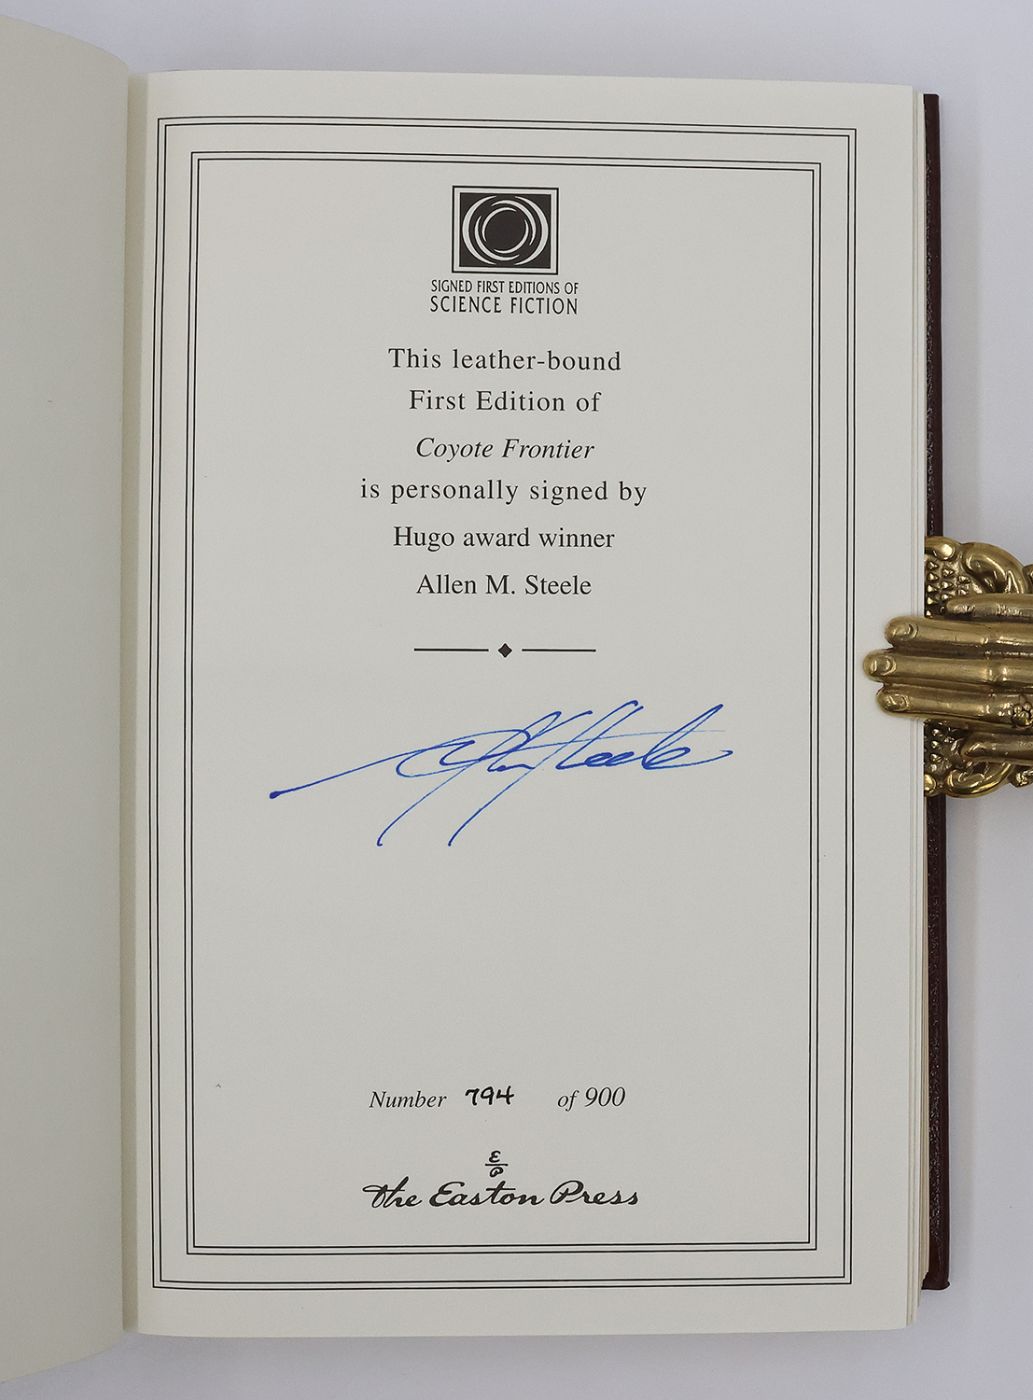 SIGNED FIRST EDITIONS OF
SCIENCE FICTION
This leather-bound
First Edition of
Coyote Frontier
is personally signed by
Hugo award winner
Allen M. Steele
Allen Steele
Number 794 of 900
E
P
The Easton Press